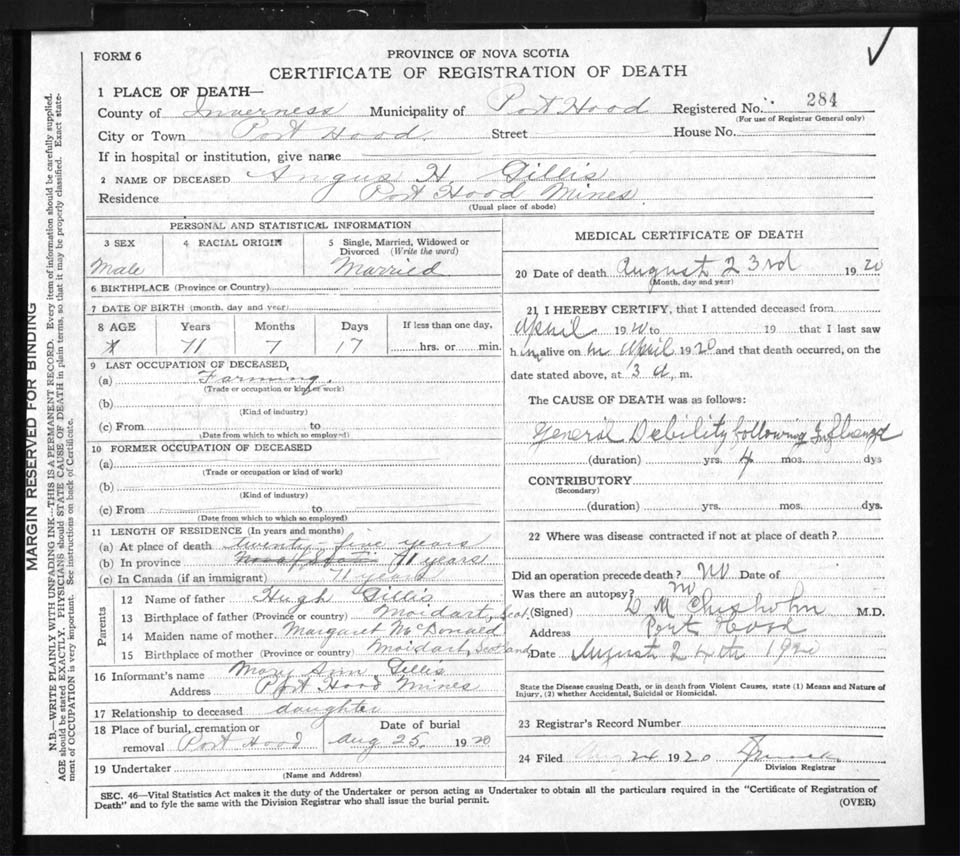 FORM 6
PROVINCE OF NOVA SCOTIA
CERTIFICATE OF REGISTRATION OF DEATH
1 PLACE OF DEATH—
County of Inverness Municipality of Port Hood Registered No. 284
(For use of Registrar General only)
City or Town Port Hood Street House No.
If in hospital or institution, give name
2 NAME OF DECEASED Angus H. Gillis
Residence Port Hood Mines
(Usual place of abode)
PERSONAL AND STATISTICAL INFORMATION
3 SEX 4 RACIAL ORIGIN 5 Single, Married, Widowed or
Divorced (Write the word)
Male Married
6 BIRTHPLACE (Province or Country)
7 DATE OF BIRTH (month, day and year)
8 AGE Years Months Days If less than one day,
71 7 17 hrs. or min.
9 LAST OCCUPATION OF DECEASED,
(a) Farming.
(Trade or occupation or kind of work)
(b)
(Kind of industry)
(c) From to
(Date from which to which so employed)
10 FORMER OCCUPATION OF DECEASED
(a)
(Trade or occupation or kind of work)
(b)
(Kind of industry)
(c) From to
(Date from which to which so employed)
11 LENGTH OF RESIDENCE (In years and months)
(a) At place of death twenty five years
(b) In province 71 years
(c) In Canada (if an immigrant) 71 years
Parents
12 Name of father Hugh Gillis
13 Birthplace of father (Province or country) Moidart, Scot.
14 Maiden name of mother Margaret McDonald
15 Birthplace of mother (Province or country) Moidart, Scotland
16 Informant's name Mary Ann Gillis
Address Port Hood Mines
17 Relationship to deceased daughter
18 Place of burial, cremation or Date of burial
removal Port Hood Aug 25. 1920
19 Undertaker
(Name and Address)
MEDICAL CERTIFICATE OF DEATH
20 Date of death August 23rd 1920
(Month, day and year)
21 I HEREBY CERTIFY, that I attended deceased from
April 1920 to 19 that I last saw
him alive on in April 1920 and that death occurred, on the
date stated above, at 3 a, m.
The CAUSE OF DEATH was as follows:
General Debility following Influenza
(duration) yrs. 4 mos. dys
CONTRIBUTORY
(Secondary)
(duration) yrs. mos. dys.
22 Where was disease contracted if not at place of death?
Did an operation precede death? no Date of
Was there an autopsy? no
(Signed) D M Chisholm M.D.
Address Port Hood
Date August 24th 1920
State the Disease causing Death, or in death from Violent Causes, state (1) Means and Nature of
Injury, (2) whether Accidental, Suicidal or Homicidal.
23 Registrar's Record Number
24 Filed 24 1920
Division Registrar
SEC. 46—Vital Statistics Act makes it the duty of the Undertaker or person acting as Undertaker to obtain all the particulars required in the "Certificate of Registration of
Death" and to fyle the same with the Division Registrar who shall issue the burial permit.
(OVER)
MARGIN RESERVED FOR BINDING
N.B.—WRITE PLAINLY WITH UNFADING INK—THIS IS A PERMANENT RECORD. Every item of information should be carefully supplied.
AGE should be stated EXACTLY. PHYSICIANS should STATE CAUSE OF DEATH in plain terms, so that it may be properly classified. Exact state-
ment of OCCUPATION is very important. See instructions on back of Certificate.